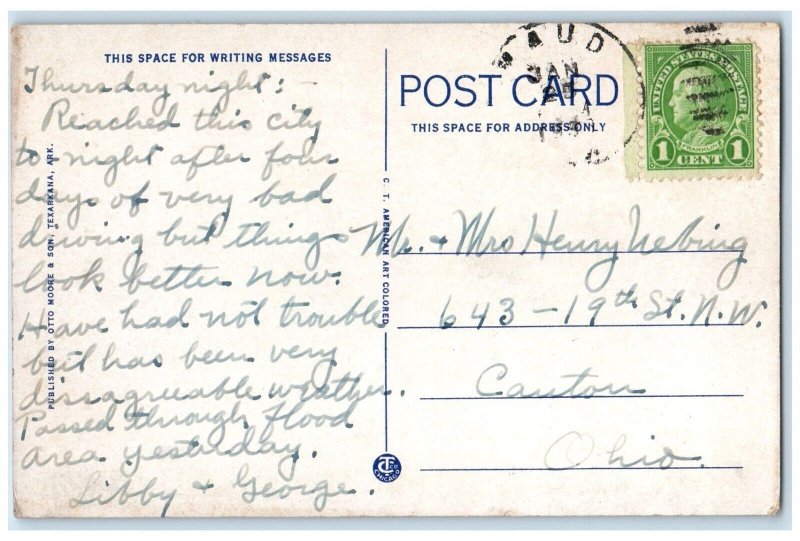 THIS SPACE FOR WRITING MESSAGES
Thursday night:-
Reached this city
to-night after four
days of very bad
driving but things
look better now.
Have had not trouble
but has been very
dissagreeable weather.
Passed through flood
area yesterday.
Libby & George.
PUBLISHED BY OTTO MOORE & SON, TEXARKANA, ARK.
C. T. AMERICAN ART COLORED
CHICAGO
POST CARD
THIS SPACE FOR ADDRESS ONLY
MAUD
JAN
UNITED STATES POSTAGE
FRANKLIN
1 CENT 1
Mr. & Mrs Henry Nebing
643-19th St. N.W.
Canton
Ohio.